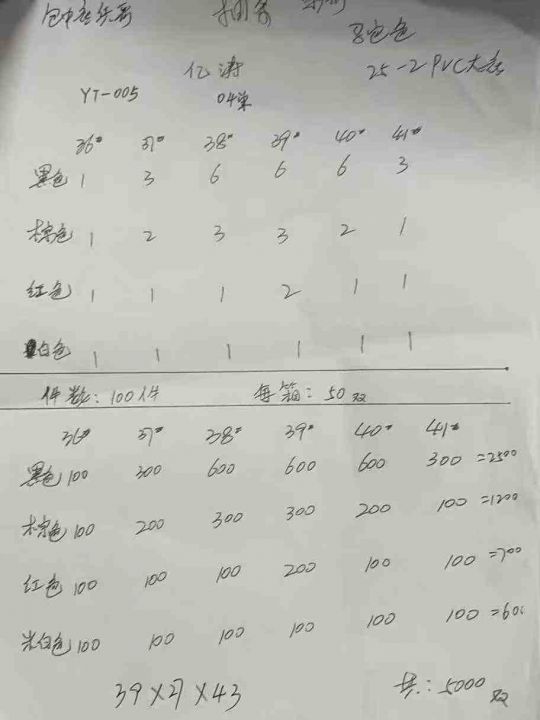 亿涛
25-2PVC大底
YT-005 04单
36# 37# 38# 39# 40# 41#
黑色 1 3 6 6 6 3
棕色 1 2 3 3 2 1
红色 1 1 1 2 1 1
白色 1 1 1 1 1 1
件数:100件 每箱:50双
36# 37# 38# 39# 40# 41#
黑色 100 300 600 600 600 300 =2500
棕色 100 200 300 300 200 100 =1200
红色 100 100 100 200 100 100 =700
米白色 100 100 100 100 100 100 =600
39×27×43 共:5000双